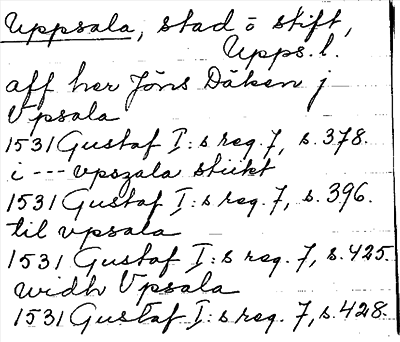 Uppsala, stad o stift,
Upps. l.
aff her Jöns Däken j
Vpsala
1531 Gustaf I:s reg. 7, s. 378.
i --- vpszala stickt
1531 Gustaf I:s reg. 7, s. 396.
til vpsala
1531 Gustaf I:s reg. 7, s. 425.
widh Vpsala
1531 Gustaf I:s reg. 7, s. 428.